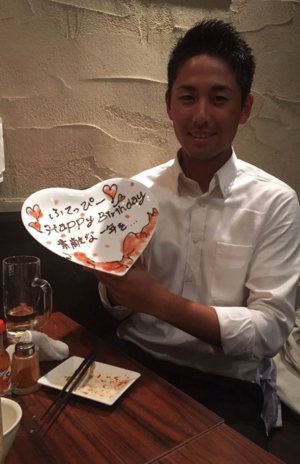 ふてっぴー!
Happy Birthday
素敵な一年を...